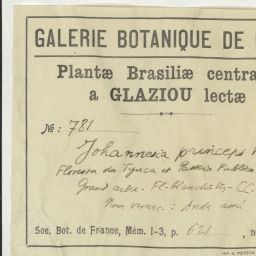 GALERIE BOTANIQUE DE
Plantæ Brasiliæ centra
a GLAZIOU lectæ
No: 781
Johannesia princeps
Floresta da Tijuca et Passeio Publico
Grand arbre. Fl. blanchâtres. CC.
Nom vernac. : Anda assú
Soc. Bot. de France, Mém. I-3, p. 621